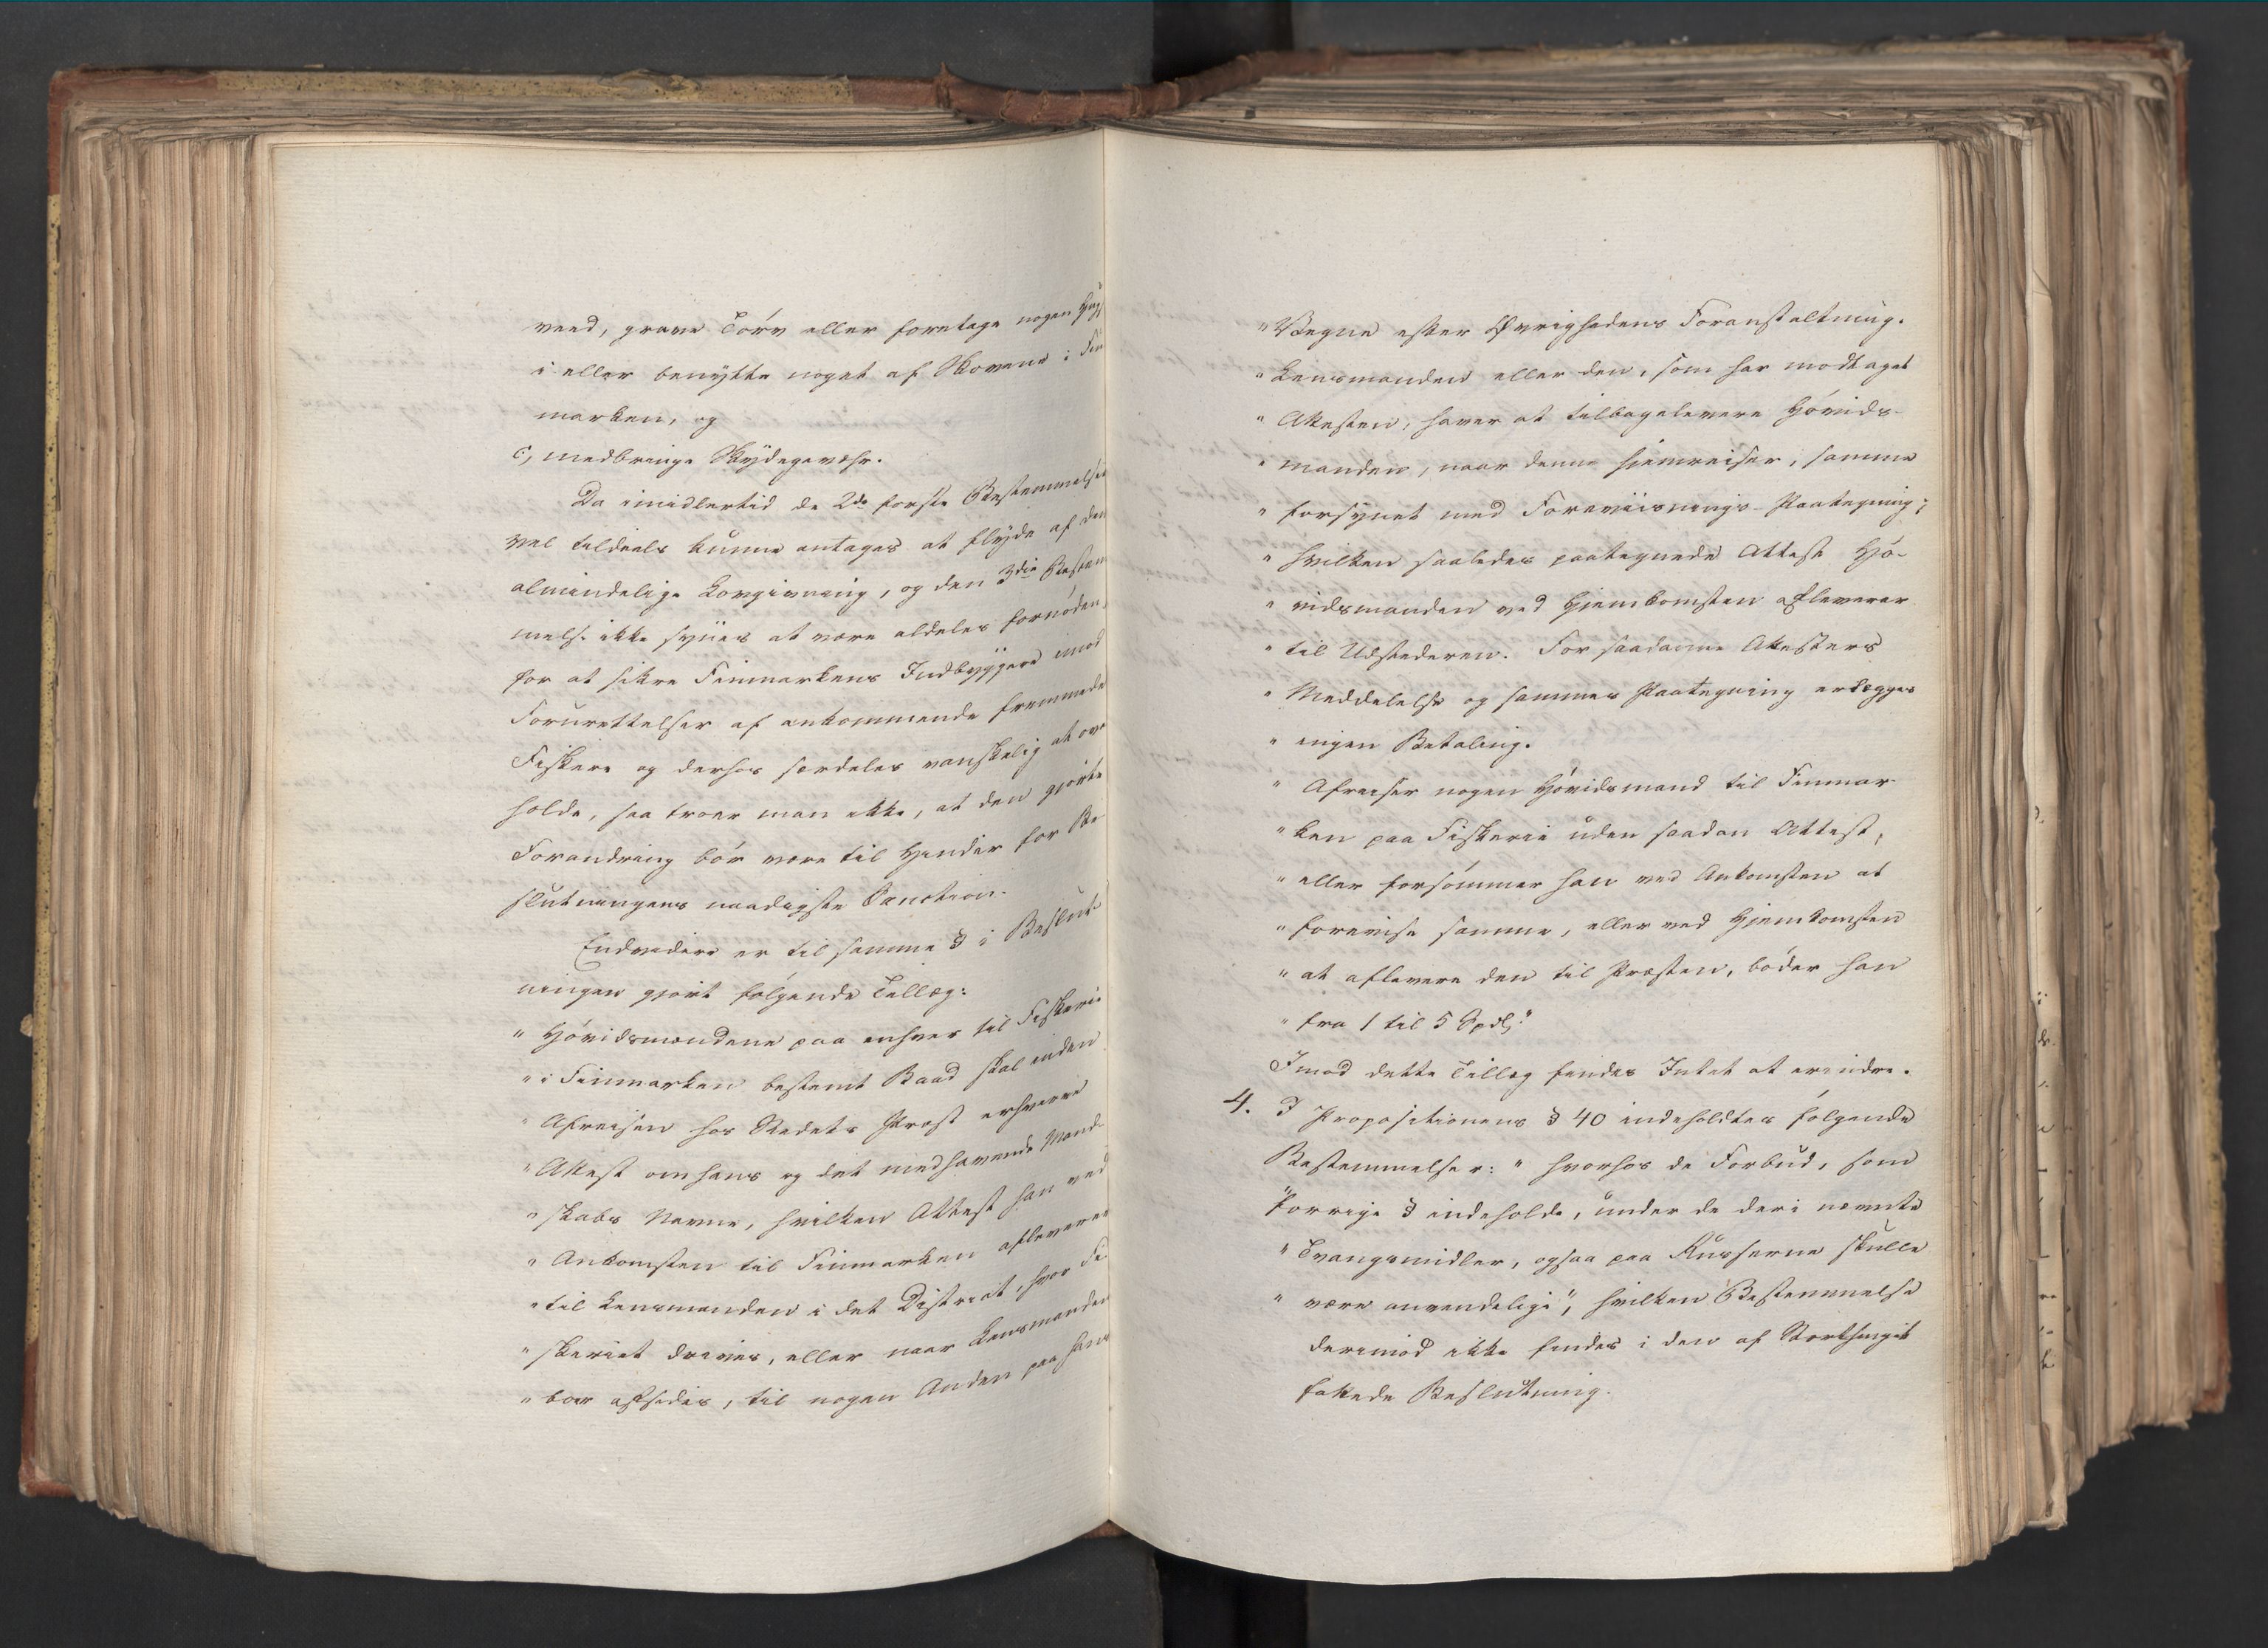 veed, grave Törv eller foretage nogen Hug
i eller benytte noget af Skovene i Fin
marken, og
c, medbringe Skydegevæhr.
Da imidlertid de 2de første Bestemmelser
vel tildeels kunne antages at flyde af den
almindelige Lovgivning, og den 3die Bestem
melse ikke synes at være aldeles fornöden
for at sikre Finmarkens Indbyggere mod
Forurettelser af ankommende fremmede
Fiskere og derhos særdeles vanskelig at over
holde, saa troer man ikke, at den gjorte
Forandring bör være til Hinder for Be
slutningens naadigste Sanction.
Endvidere er til samme § i Beslut-
ningen gjort følgende Tillæg:
" Hövidsmændene paa enhver til Fiskerie
" i Finmarken bestemt Baad skal inden
" Afreisen hos Stedets Præst erhverve
" Attest om hans og det medhavende Mand-
" skabs Navne, hvilken Attest han ved
" Ankomsten til Finmarken afleverer
" til Lensmanden i det District, hvor Fi-
" skeriet drives, eller naar Lensmanden
" boer afsides, til nogen Anden paa hans
" Vegne efter Øvrighedens Foranstaltning.
" Lensmanden eller den, som har modtaget
" Attesten, haver at tilbagelevere Hövids-
" manden, naar denne hjemreiser, samme
" forsynet med Foreviisnings-Paategning;
" hvilken saaledes paategnede Attest Hö-
" vidsmanden ved Hjemkomsten afleverer
" til Udstederen. For saadanne Attesters
" Meddelelse og sammes Paategning erlægges
" ingen Betaling.
" Afreiser nogen Hövidsmand til Finmar-
" ken paa Fiskerie uden saadan Attest,
" eller forsömmer han ved Ankomsten at
" forevise samme, eller ved Hjemkomsten
" at aflevere den til Præsten, böder han
" fra 1 til 5 Spdl."
Imod dette Tillæg findes Intet at erindre.
4. I Propositionens § 40 indeholdtes følgende
Bestemmelser: " hvorhos de Forbud, som
" forrige § indeholde, under de deri nævnte
" Tvangsmidler, ogsaa paa Russerne skulle
" være anvendelige", hvilken Bestemmelse
derimod ikke findes i den af Storthinget
fattede Beslutning.